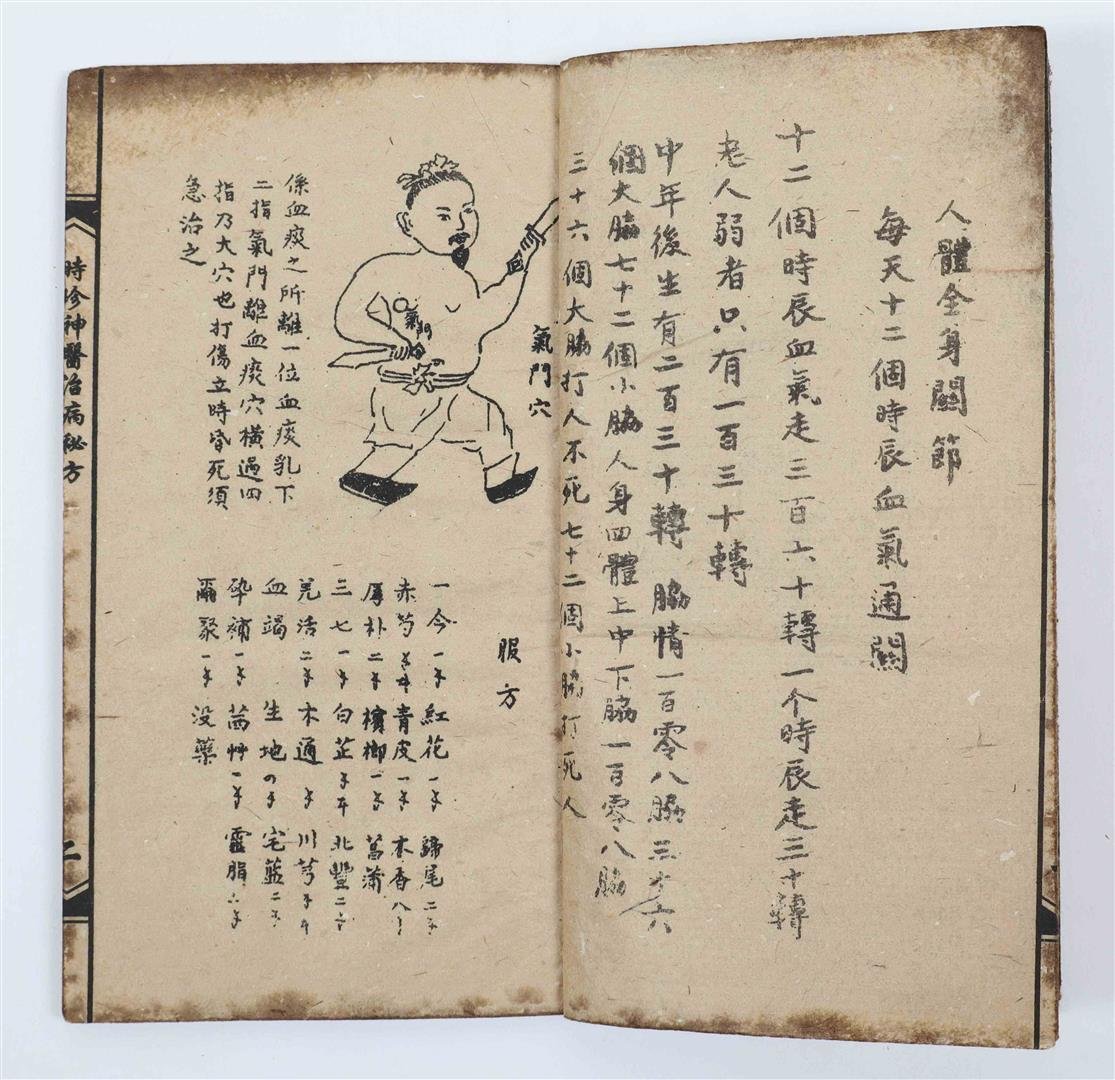 人體全身關節
每天十二個時辰血氣通關
十二個時辰血氣走三百六十轉一个時辰走三十轉
老人弱者只有一百三十轉
中年後生有二百三十轉 脇情一百零八脇三十六
個大脇七十二個小脇人身四體上中下脇一百零八脇
三十六個大脇打人不死七十二個小脇打死人
氣門穴
氣門
係血痰之所離一位血痰乳下
二指氣門離血痰穴橫過四
指乃大穴也打傷立時昏死須
急治之
服方
一今一 紅花一 歸尾二
赤芍 青皮一 木香八
厚朴二 檳榔一 菖蒲
三七一 白芷 北豐二
羌活二 木通 川芎
血竭 生地 宅藍二
砕補一 茜艸一 靈脂六
爾聚一 没藥
時珍神醫治病秘方
二